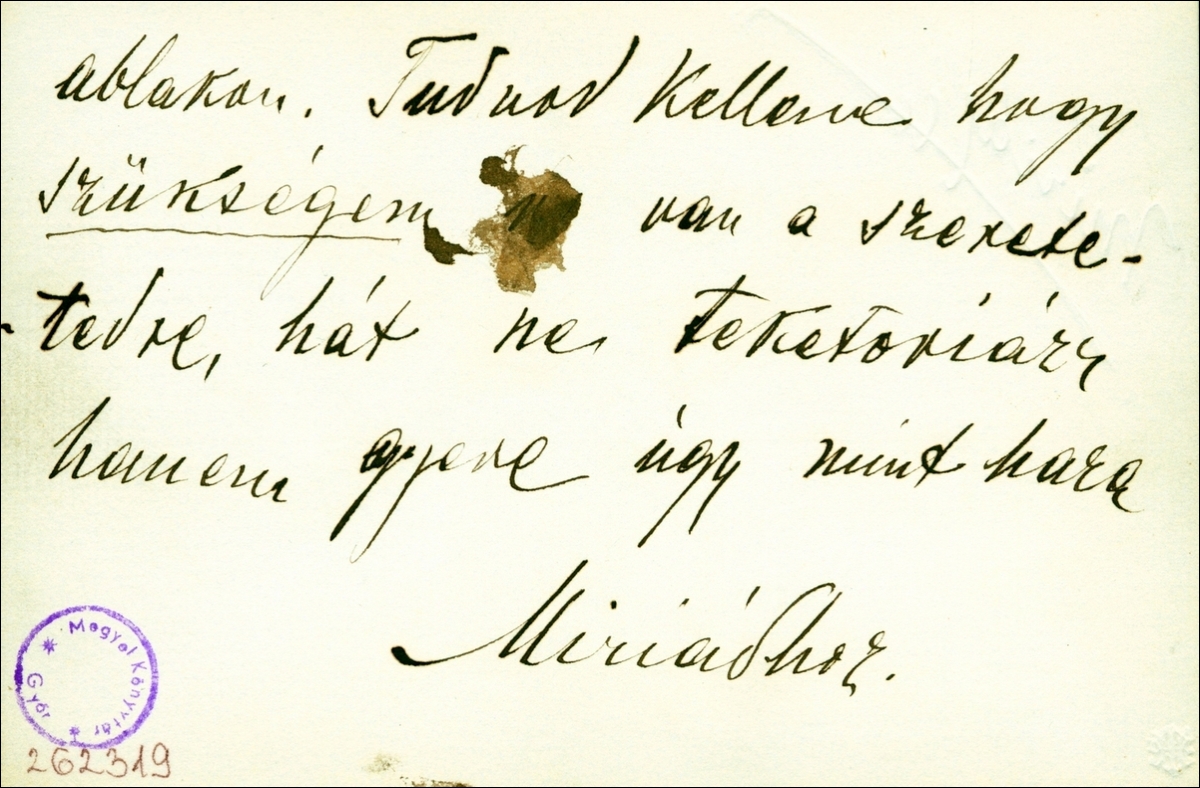 ablakon. Tudnod Kellene hogy
szükségem van a szerete-
-tedre, hát ne teketoriázz
hanem gyere úgy mint haza
Miriádhoz.
Megyei Könyvtár
Győr
262319